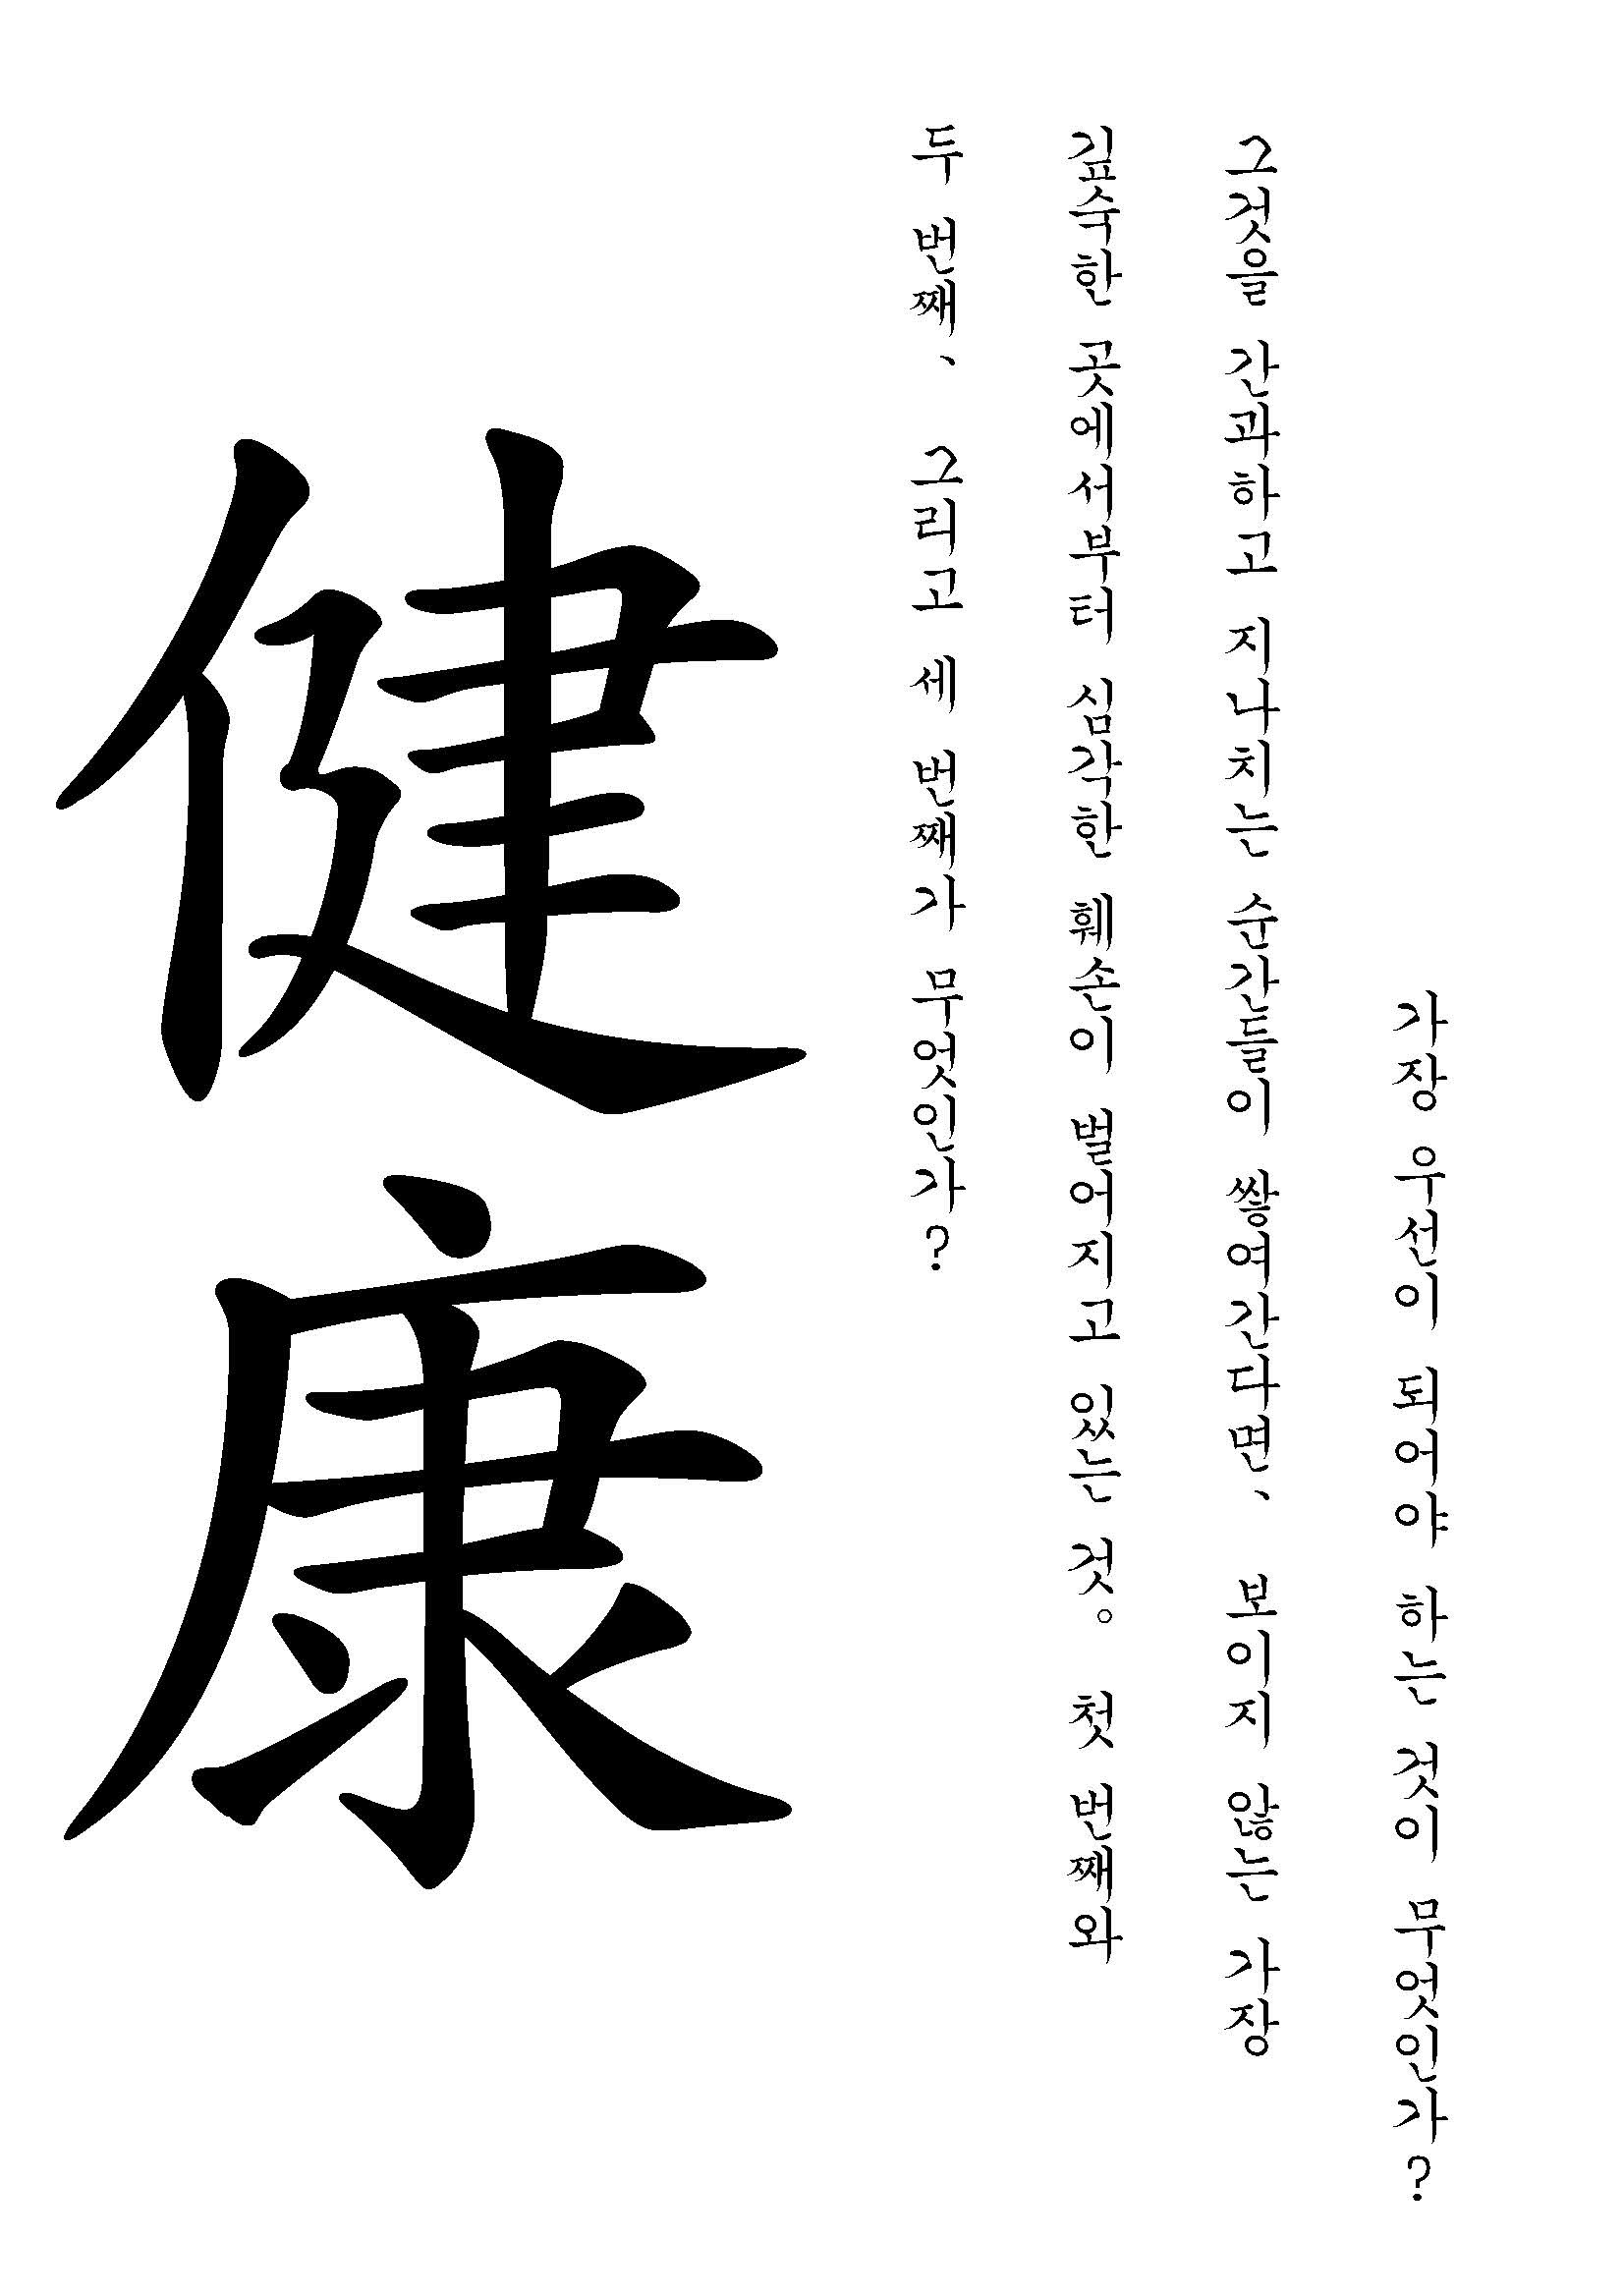 가장 우선이 되어야 하는 것이 무엇인가?
그것을 간과하고 지나치는 순간들이 쌓여간다면、 보이지 않는 가장
깊숙한 곳에서부터 심각한 훼손이 벌어지고 있는 것。 첫 번째와
두 번째、 그리고 세 번째가 무엇인가?
健康